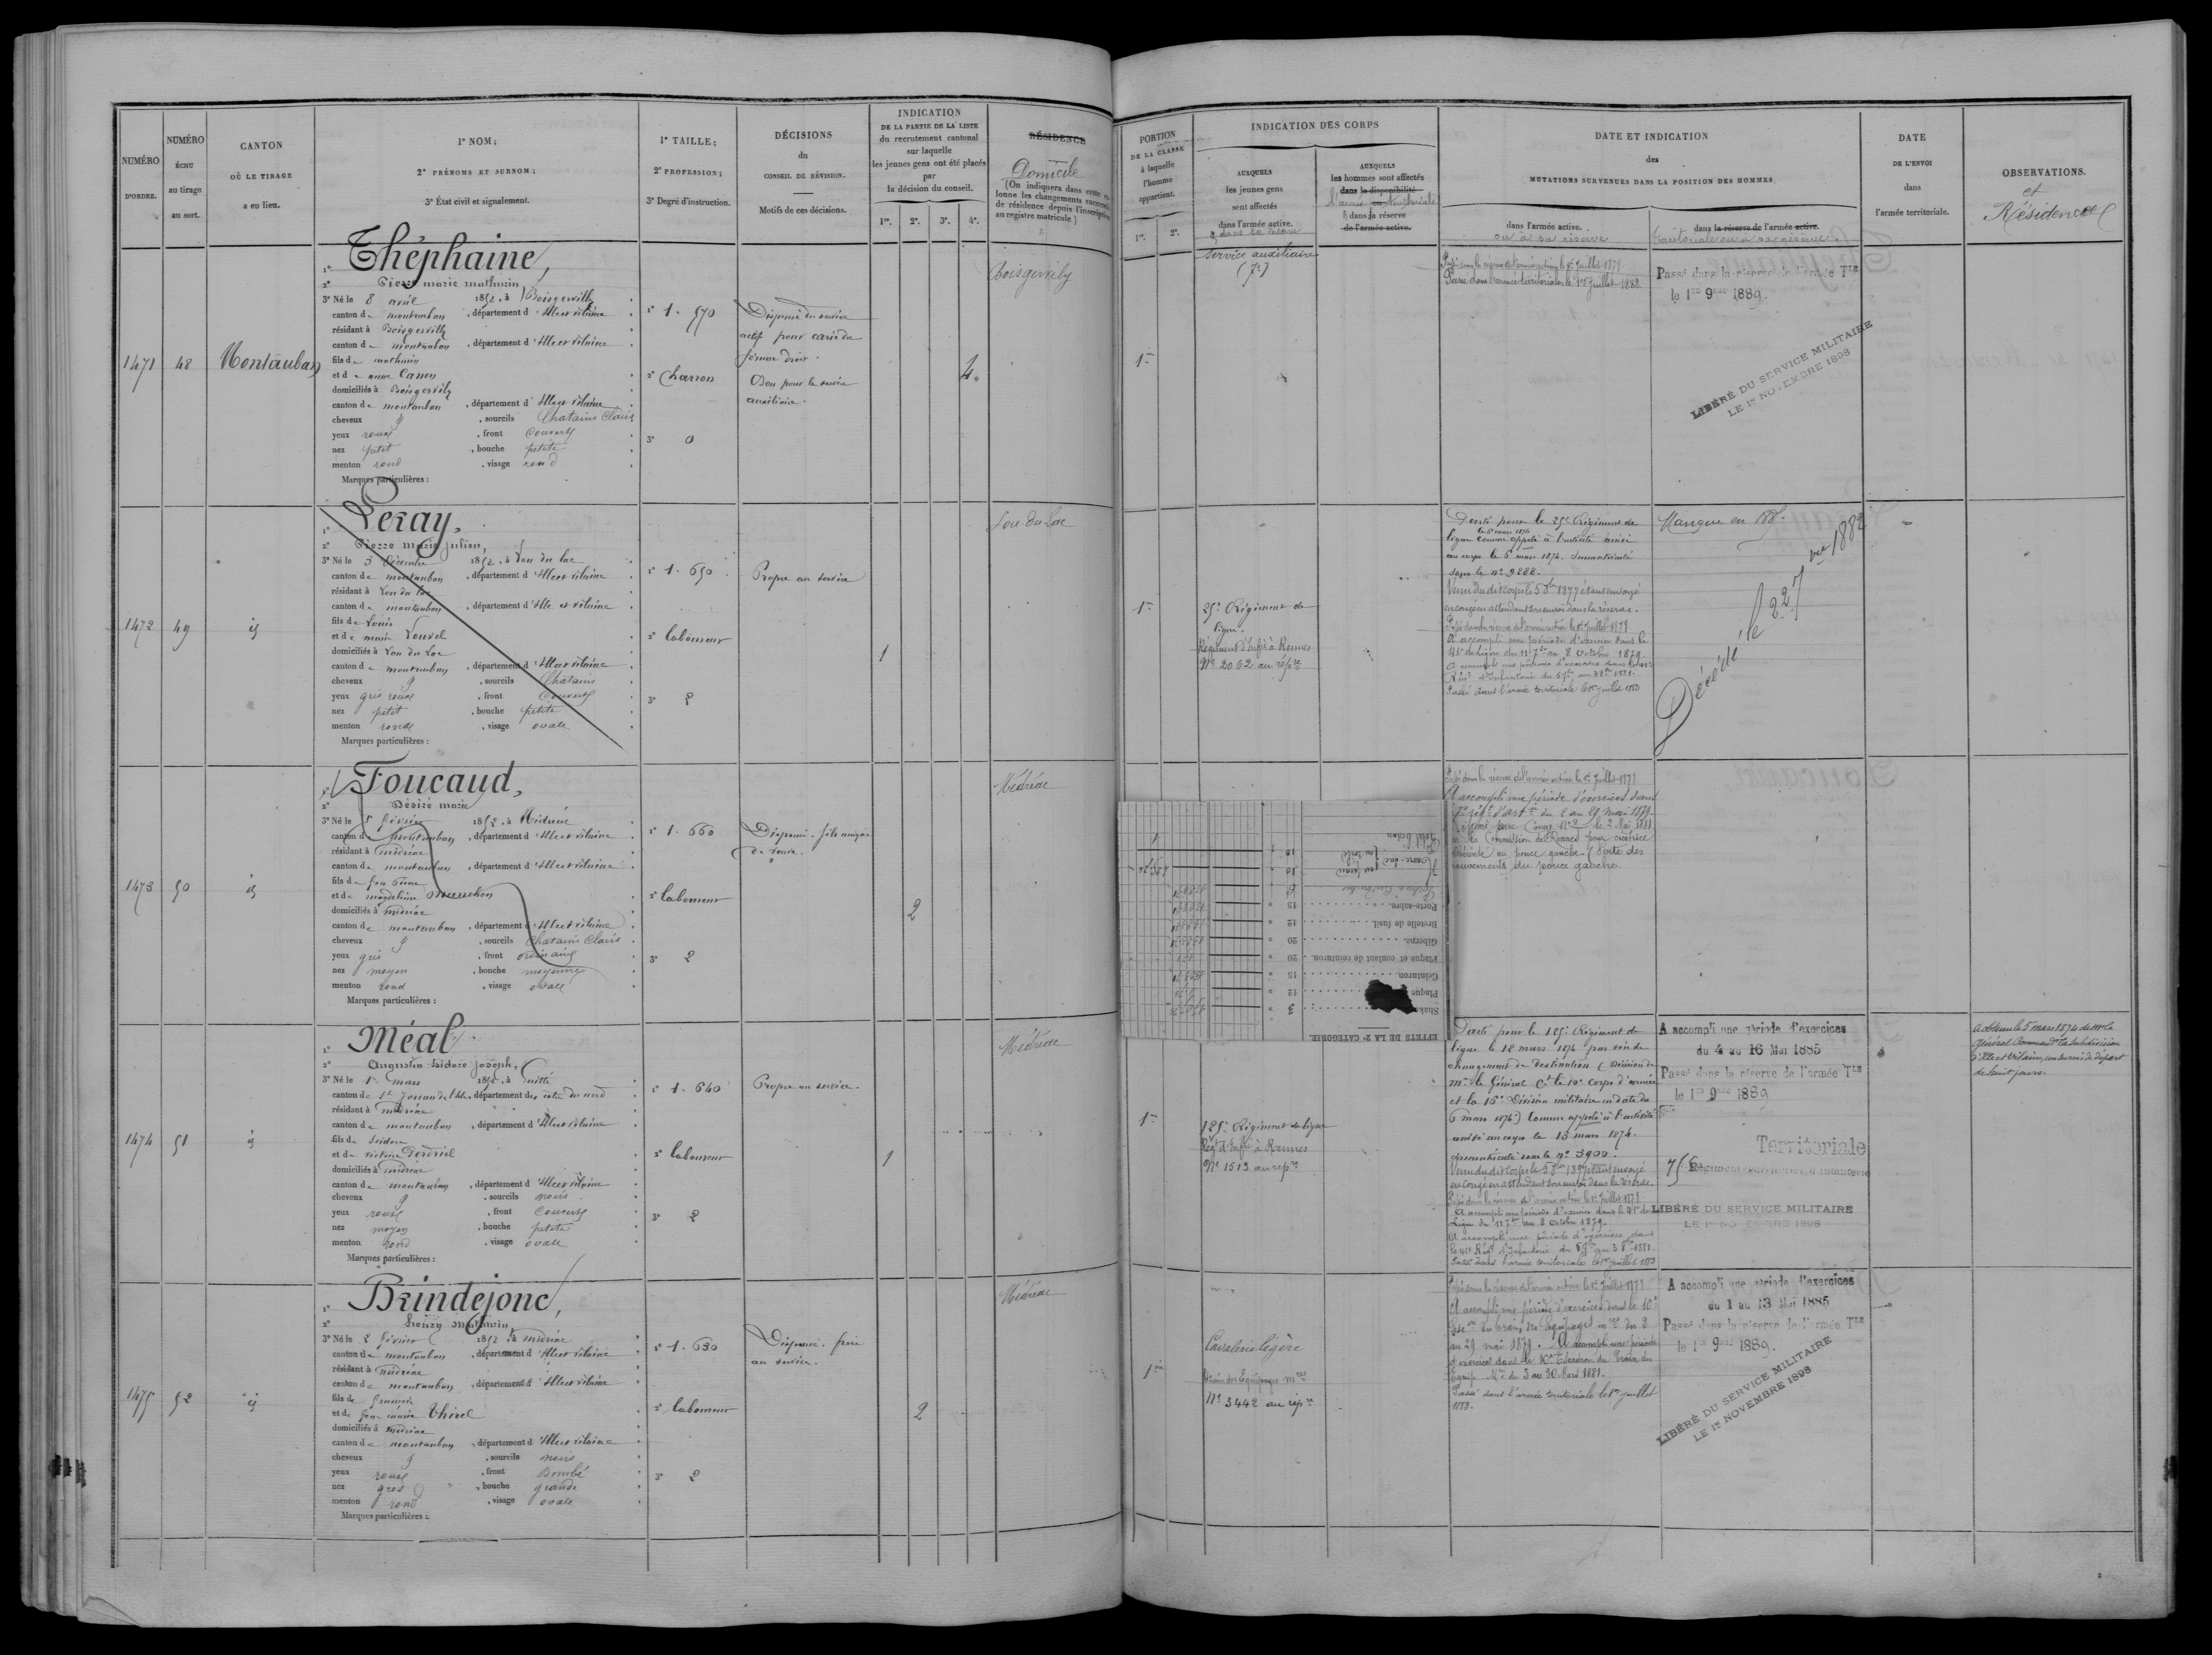 NUMÉRO
D'ORDRE.
NUMÉRO
ÉCHU
au tirage
au sort.
CANTON
OÙ LE TIRAGE
a eu lieu.
1° NOM;
2° PRÉNOMS ET SURNOM;
3° État civil et signalement.
1° TAILLE;
2° PROFESSION;
3° Degré d'instruction.
DÉCISIONS
du
CONSEIL DE RÉVISION.
Motifs de ces décisions.
INDICATION
DE LA PARTIE DE LA LISTE
du recrutement cantonal
sur laquelle
les jeunes gens ont été placés
par
la décision du conseil.
1re. 2e. 3e. 4e.
RÉSIDENCE
Domicile
(On indiquera dans cette co-
lonne les changements successifs
de résidence depuis l'inscription
au registre matricule)
1471
48
Montauban
1° Théphaine,
2° Pierre marie mathurin
3° Né le 8 avril 1852, à Boisgervilly
canton de montauban, département d'Ille et vilaine
résidant à Boisgervilly
canton de montauban, département d'Ille et vilaine
fils de mathurin
et de anne Canon
domiciliés à Boisgervily
canton de montauban, département d'Ille et vilaine
cheveux g, sourcils Chatains Clairs
yeux roux, front Couvert
nez petit, bouche petite
menton rond, visage rond
Marques particulières :
1° 1. 570
2° Charron
3° 0
Dispensé du service
actif pour carie du
fémur droit.
Bon pour le service
auxiliaire.
4.
Boisgervily
1472
49
id
1° Leray,
2° Pierre marie Julien,
3° Né le 3 Décembre 1852, à Lou du lac
canton de montauban, département d'Ille et vilaine
résidant à Lou du lac
canton de montauban, département d'Ille et vilaine
fils de Louis
et de marie Louvel
domiciliés à Lou du Lac
canton de montauban, département d'Ille et vilaine
cheveux g, sourcils Chatains
yeux gris roux, front Couvert
nez petit, bouche petite
menton ronde, visage ovale
Marques particulières :
1° 1. 650
2° laboureur
3° 2
Propre au service
1
Lou-du-Lac
1473
50
id
1° Foucaud,
2° Désiré marie
3° Né le 5 février 1852, à Médréac
canton de montauban, département d'Ille et vilaine
résidant à médréac
canton de montauban, département d'Ille et vilaine
fils de feu Pierre
et de magdeleine
domiciliés à médréac
canton de montauban, département d'Ille et vilaine
cheveux g, sourcils Chatains Clairs
yeux gris, front ordinaire
nez moyen, bouche moyenne
menton rond, visage ovale
Marques particulières :
1° 1. 660
2° laboureur
3° 2
Dispensé. fils unique
de veuve.
2
Médréac
1474
51
id
1° Méal
2° Augustin Isidore Joseph,
3° Né le 1er mars 1852, à Guitté
canton de St Jouan de l'Isle, département des côtes du nord
résidant à médréac
canton de montauban, département d'Ille et vilaine
fils de Isidore
et de victoire
domiciliés à médréac
canton de montauban, département d'Ille et vilaine
cheveux g, sourcils noirs
yeux roux, front Couvert
nez moyen, bouche petite
menton rond, visage ovale
Marques particulières :
1° 1. 640
2° laboureur
3° 2
Propre au service.
1
Médréac
1475
52
id
1° Brindejonc,
2° henry Mathurin
3° Né le 2 février 1852, à médréac
canton de montauban, département d'Ille et vilaine
résidant à médréac
canton de montauban, département d'Ille et vilaine
fils de françois
et de feue marie Thirel
domiciliés à médréac
canton de montauban, département d'Ille et vilaine
cheveux g, sourcils noirs
yeux roux, front Bombé
nez gros, bouche grande
menton rond, visage ovale
Marques particulières :
1° 1. 630
2° laboureur
3° 2
Dispensé. frère
au service.
2
Médréac
PORTION
DE LA CLASSE
à laquelle
l'homme
appartient.
1re. 2e.
INDICATION DES CORPS
AUXQUELS
les jeunes gens
sont affectés
dans l'armée active.
ou dans sa réserve
AUXQUELS
les hommes sont affectés
dans la disponibilité
l'armée ou territoriale
dans sa réserve
de l'armée active.
DATE ET INDICATION
des
MUTATIONS SURVENUES DANS LA POSITION DES HOMMES
dans l'armée active.
ou à sa réserve
dans la réserve de l'armée active.
territoriale ou à sa réserve.
DATE
DE L'ENVOI
dans
l'armée territoriale.
OBSERVATIONS.
et
Résidences
1re
Service auxiliaire
(7e)
Passé dans la réserve de l'armée active le 1er Juillet 1879.
Passé dans l'armée territoriale le 1er Juillet 1882
Passé dans la réserve de l'armée Tle
le 1er 9bre 1889.
LIBÉRÉ DU SERVICE MILITAIRE
LE 1er NOVEMBRE 1898
1re
25e Régiment de
ligne.
Régiment d'Infie à Rennes
No 2062 au répre
Porté pour le 25e Régiment de
le 6 mars 1874
ligne comme appelé à l'activité arrivé
au corps le 6 mars 1874. Immatriculé
sous le no 9288.
Venu dudit corps le 5 1877 étant envoyé
en congé en attendant son envoi dans la réserve.
Passé dans la réserve de l'armée active le 1er Juillet 1879
A accompli une période d'exercice dans le
41e de ligne du 11 7bre au 8 Octobre 1879.
A accompli une période d'exercice dans le 41e
Régt d'Infanterie du
Passé dans l'armée territoriale le 1er Juillet 1882
Manque en 188.
Décédé le 22 1882
Passé dans la réserve de l'armée active le 1er Juillet 1879
A accompli une période d'exercices dans
7e régt d'artie du 2 au 29 mai 1879.
Réformé par Congé No 2 le 2 Mai 1881
Commission de Rennes pour cicatrice
adhérente au pouce gauche. (Perte des
mouvements du pouce gauche.
EFFETS DE LA 2e CATEGORIE.
Shako 3
Plaque 12
Ceinturon 15
Plaque et coulant de ceinturon. 20
Giberne 20
Bretelle de fusil. 12
Porte-sabre. 15
1re
125e Régiment de ligne
Régt d'Infie à Rennes
No 1513 au repre
Porté pour le 125e Régiment de
ligne le 12 mars 1874 par voie de
changement de destination (Décision de
Mr le Général Ct le 10e Corps d'armée
et la 16e Division militaire en date du
6 mars 1874) Comme appelé à l'activité
arrivé au corps le 13 mars 1874.
Immatriculé sous le no 3900.
Venu dudit Corps le étant envoyé
en congé en attendant son envoi dans la réserve
Passé dans la réserve de l'armée active le 1er Juillet 1879
A accompli une période d'exercice dans le 41e de
Ligne du 11 7bre au 8 Octobre 1879.
A accompli une période d'exercices dans
le 41e Régt d'Infanterie du
Passé dans l'armée territoriale le 1er Juillet
A accompli une période d'exercices
du 4 au 16 Mai 1885
Passé dans la réserve de l'armée Tle
le 1er 9bre 1889
Territoriale
LIBÉRÉ DU SERVICE MILITAIRE
LE 1er NOVEMBRE 1898
A obtenu le 5 mars 1874 de Mr le
Général Commandt la subdivision
d'Ille et Vilaine, un sursis de départ
de huit jours.
1re
Cavalerie légère
train des Equipages mres
No 3442 au répre
Passé dans la réserve de l'armée active le 1er Juillet 1879
A accompli une période d'exercices dans le 10e
Escon du train des Equipages mres du 2
au 29 mai 1879. A accompli une période
d'exercices dans le 10e Escadron du Train des
Equip. Mres du 3 au 30 Mars 1881.
Passé dans l'armée territoriale le 1er Juillet
A accompli une période d'exercices
du 1 au 13 Mai 1885
Passé dans la réserve de l'armée Tle
le 1er 9bre 1889.
LIBÉRÉ DU SERVICE MILITAIRE
LE 1er NOVEMBRE 1898